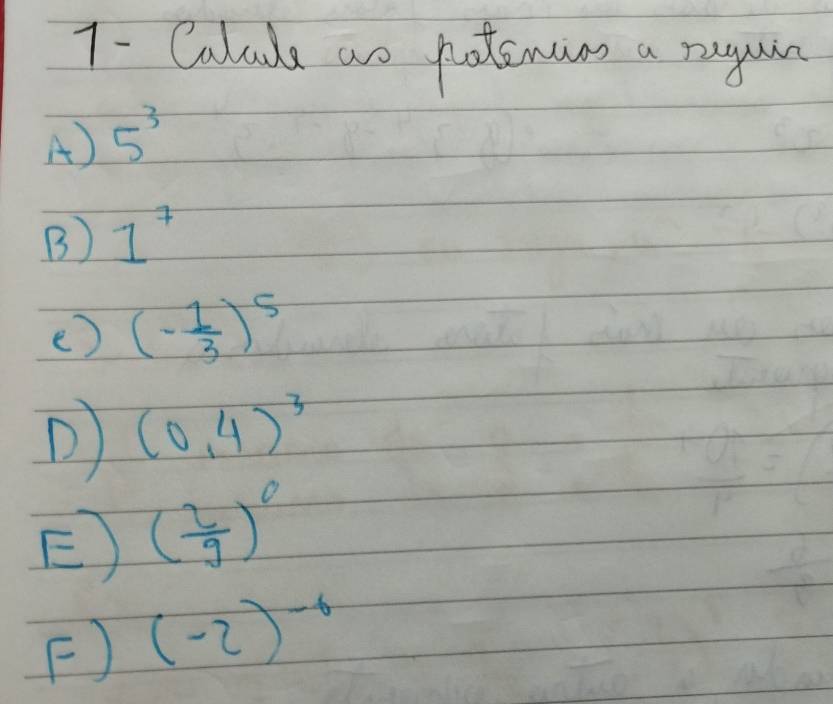 1- Calcule as potências a seguir
A) 5³
B) 1⁷
c) (-1/3)⁵
D) (0,4)³
E) (2/9)⁰
F) (-2)⁻⁶